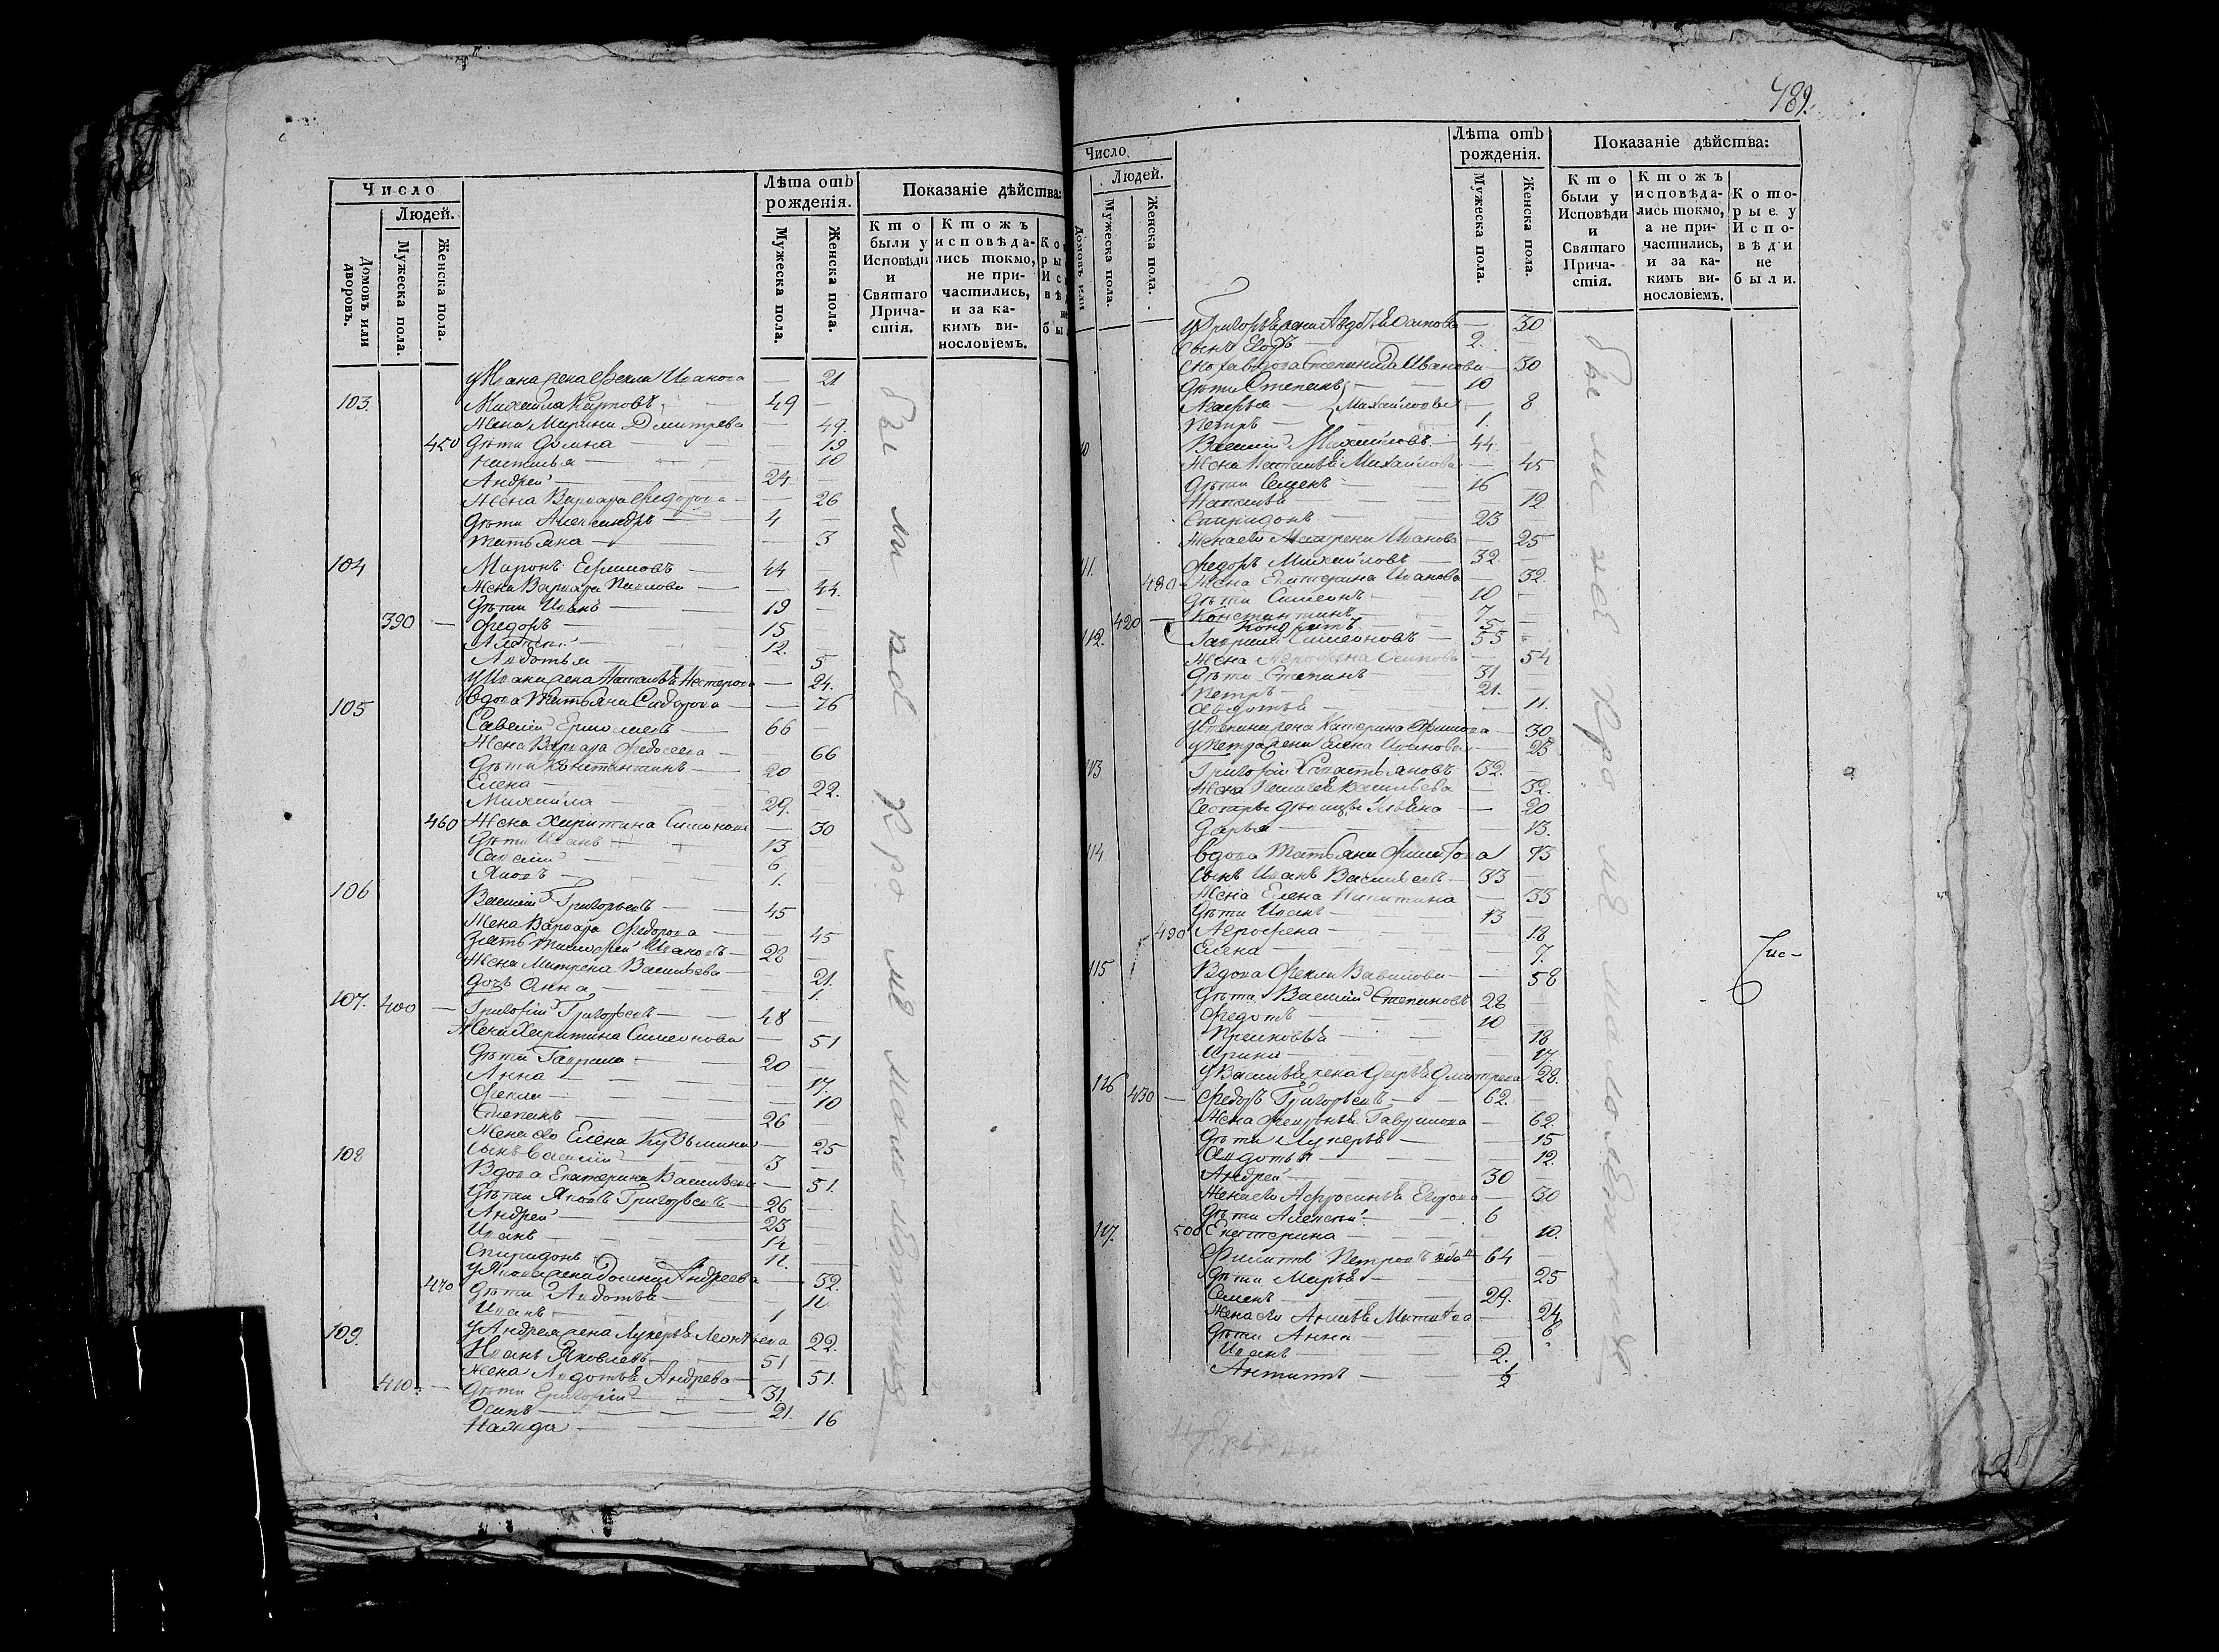 Число
Людей.
Домовъ или дворовъ.
Мужеска пола.
Женска пола.
Лѣта отъ рожденія.
Мужеска пола.
Женска пола.
Показаніе дѣйства:
Кто были у Исповѣди и Святаго Причастія.
Ктожъ исповѣдались токмо, не причастились, и за какимъ винословіемъ.
21
103. Михайла Карповъ 49
Жена Марина Дмитрева 49.
450 Дѣти Домна 19
Наталья 10
Андрей 24
Жена Варвара Федорова 26
Дѣти Александръ 4
Татьяна 3
104 Миронъ Ефимовъ 44
Жена Варвара Павлова 44.
Дѣти Иванъ 19
390 Федоръ 15
Алексѣй 12.
Авдотья 5
24.
105 вдова Татьяна Сидорова 76
Савелій Ермолаевъ 66
Жена Варвара Федосеева 66
Дѣти Константинъ 20
Елена 22.
Михайла 29.
460 Жена Харитина Симонова 30
Дѣти Иванъ 13
6
Яковъ 1.
106 Василій Григорьевъ 45
Жена Варвара Федорова 45
Зять Тимофей Ивановъ 28
Жена Матрена Васильева 21.
Дочь Анна 1.
107. 400 Григорій Григорьевъ 48
Жена Харитина Симеонова 51
Дѣти Гаврила 20
Анна 17
Фекла 10
Степанъ 26
Жена его Елена Кузьмина 25
Сынъ Василій 3
108 Вдова Екатерина Васильева 51.
Дѣти Яковъ Григорьевъ 26
Андрей 23
Иванъ 14
Спиридонъ 11.
Андреева 32.
470 Дѣти Авдотья 11
Иванъ 1
у Андрея жена Лукерья Леонтьева 22.
109. Иванъ Яковлевъ 51
Жена Авдотья Андрева 51.
410. Дѣти Григорій 31.
Осипъ 21.
16
489.
Число
Людей.
Домовъ или
Мужеска пола.
Женска пола.
Лѣта отъ рожденія.
Мужеска пола.
Женска пола.
Показаніе дѣйства:
Кто были у Исповѣди и Святаго Причастія.
Ктожъ исповѣдались токмо, а не причастились, и за какимъ винословіемъ.
Которые у Исповѣди не были.
30
2.
Сноха вдова Степанида Иванова 30
Дѣти Степанъ 10
Михайловы 8
Петръ 1.
Василій Михайловъ 44
Жена Наталья Михайлова 45
Дѣти Семенъ 16
Наталья 12
Спиридонъ 23
Жена его Матрена Иванова 25
11. Федоръ Михайловъ 32.
480 Жена Екатерина Иванова 32.
Дѣти Симеонъ 10
420 Константинъ 7
5
112. Гаврила Симеоновъ 55
54
Дѣти Степанъ 31
Петръ 21.
Авдотья 11.
у Степана жена Катерина 30
у Петра жена Елена Иванова 23
113 Григорій 32.
Жена Васильева 32.
20
Дарья 13.
114 вдова Татьяна 73
Сынъ Иванъ Васильевъ 33
Жена Елена Никитина 35
Дѣти Иванъ 13
490 18
Елена 7.
115 Вдова Фекла Вавилова 58
Дѣти Василій Степановъ 28
Федотъ 10
Прасковья 18
Ирина 17.
у Василья жена Дарья Дмитрева 28.
116 430 Федоръ Григорьевъ 62.
Жена Гаврилова 62.
Дѣти Лукерья 15
Авдотья 12.
Андрей 30
Жена его Афросинья Егорова 30
Дѣти Алексѣй 6
500 Екатерина 10.
117. Филипъ Петровъ вдо 64
Дѣти Марья 25
Семенъ 29.
24
Дѣти Анна 6
Иванъ 2.
Антипъ ½
Были всѣ кромѣ малолѣтнихъ
Были всѣ кромѣ малолѣтнихъ